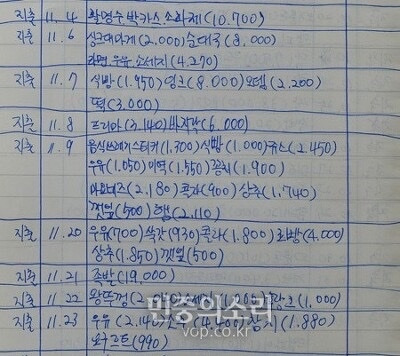 지출 11.4 활명수 박카스 소화제 (10.700)
지출 11.6 싱크대마개 (2,000) 순대국 (8.000)
라면 우유 소세지 (4.270)
지출 11.7 식빵 (1.950) 잉크 (8.000) 오뎅 (2.200)
떡 (3.000)
지출 11.8 프리마 (3.140) 바지락 (6.000)
지출 11.9 음식쓰레기스티커 (1,300) 식빵 (1.000) 쥬스 (2.450)
우유 (1.050) 미역 (1.550) 꽁치 (1.900)
마요네즈 (2.180) 콜라 (900) 상추 (1.740)
깻잎 (500) 햄 (2.110)
지출 11.20 우유 (700) 쑥갓 (930) 콜라 (1.800) (4.000)
상추 (1.850) 깻잎 (500)
지출 11.21 족발 (19,000)
지출 11.22 왕뚜껑 (1,000)
지출 11.23 우유 (2.140) (4.400) 참치 (1.880)
요구르트 (990)
민중의소리
vop.co.kr